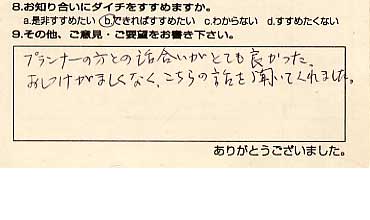 8.お知り合いにダイチをすすめますか。
a.是非すすめたい b.できればすすめたい c.わからない d.すすめたくない
9.その他、ご意見・ご要望をお書き下さい。
プランナーの方との話合いがとても良かった。
おしつけがましくなく、こちらの話を聞いてくれました。
ありがとうございました。